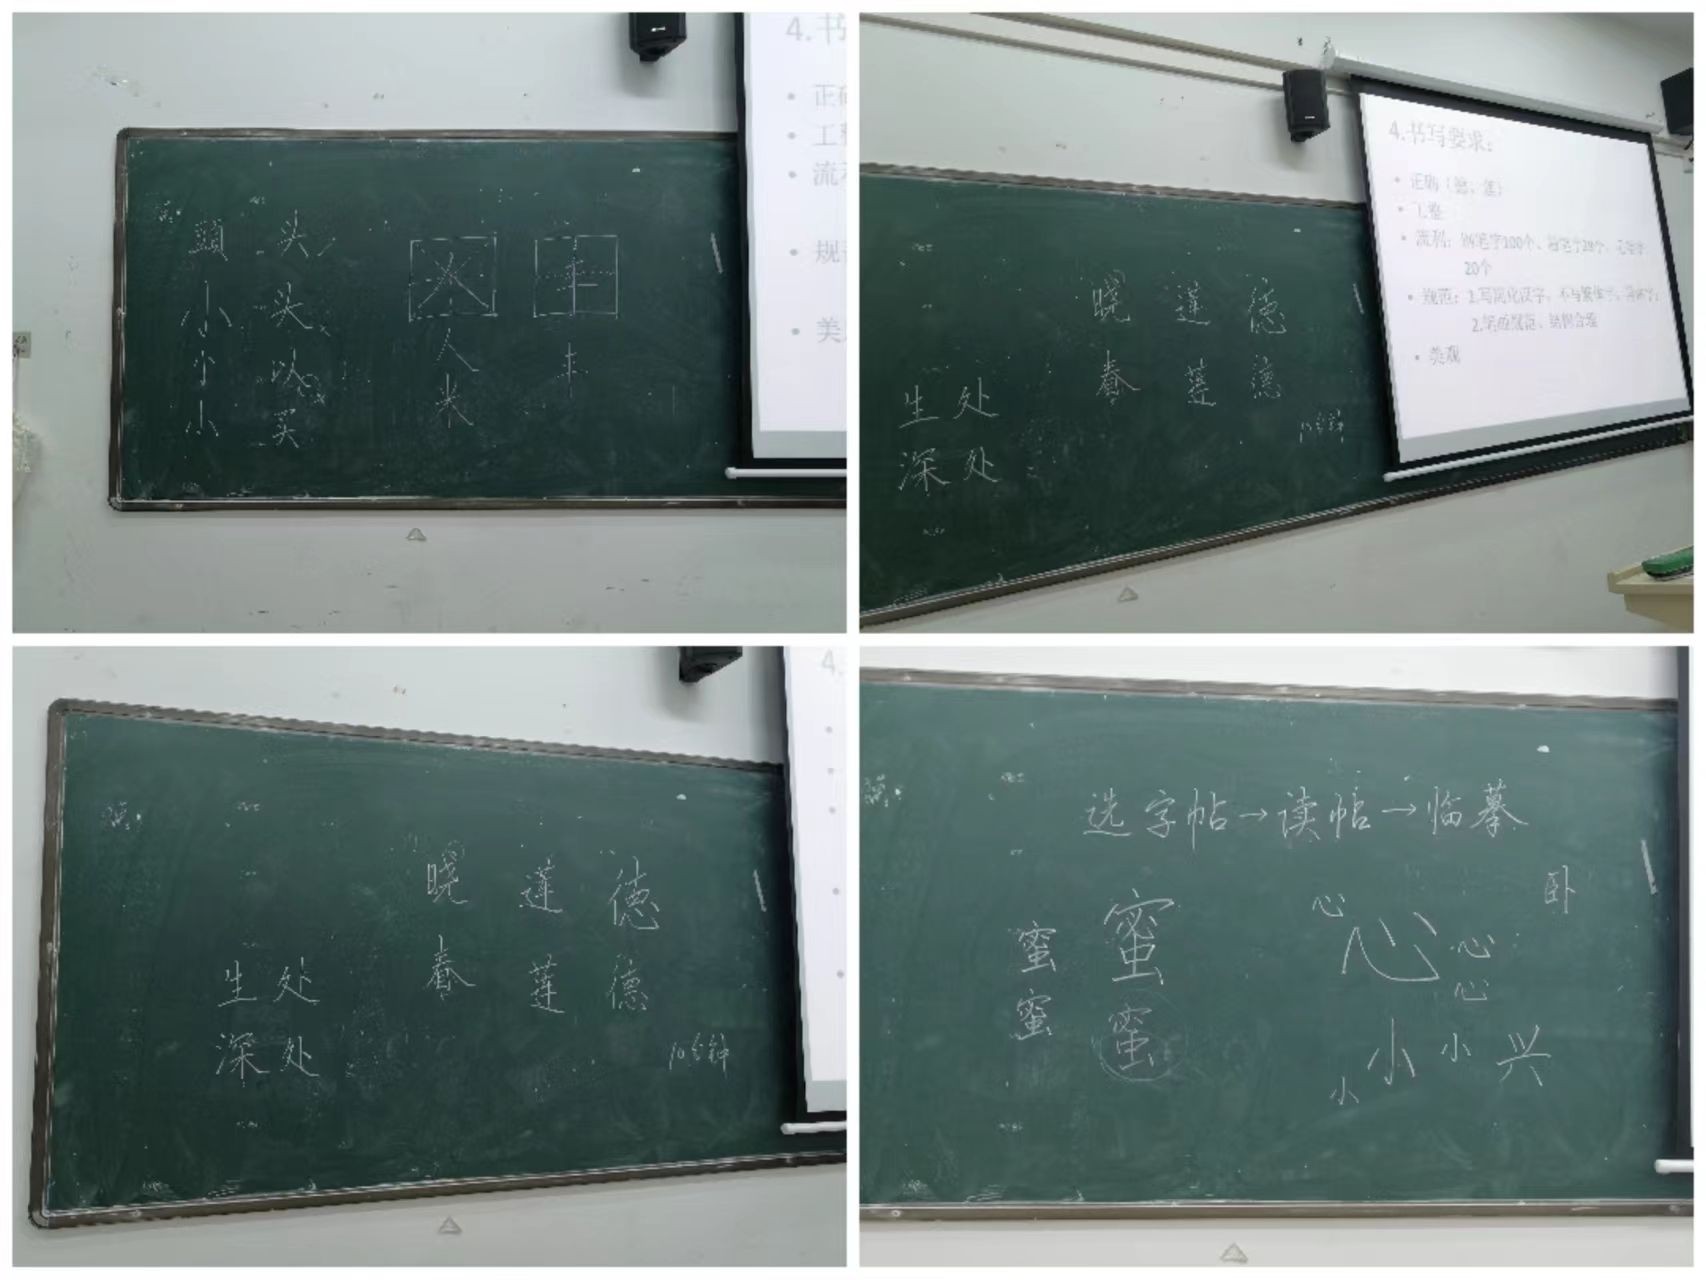 4.书
正确
工整
流利
规范
美观
頭 头
小 头
小 以
小 买
人
米
丰
4.书写要求：
• 正确（德；莲）
• 工整
• 流利：钢笔字100个、粉笔字20个、毛笔字
20个
• 规范：1.写简化汉字，不写繁体字、异体字；
2.笔画规范、结构合理
• 美观
晓 莲 德
春 莲 德
生 处
深 处
10分钟
4.
晓 莲 德
春 莲 德
生 处
深 处
10分钟
选字帖→读帖→临摹
卧
蜜 蜜
蜜 蜜
心 心 心
心
小 小 小 兴